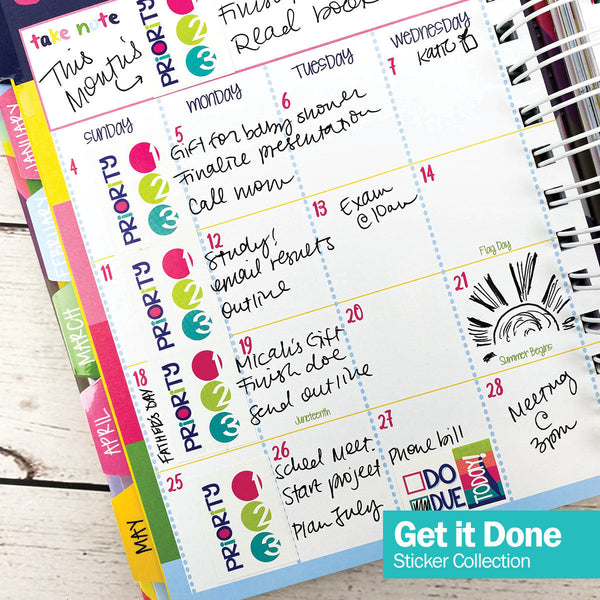 take note
This
Month's
PRIORITY
1
2
3
Finish
Read book
SUNDAY
MONDAY
TUESDAY
WEDNESDAY
4
PRIORITY
1
2
3
5
Gift for baby shower
Finalize presentation
Call mom
6
7
Katie
11
PRIORITY
1
2
3
12
Study!
email results
outline
13
Exam
@10am
14
Flag Day
18
FATHER'S DAY
PRIORITY
1
2
3
19
Micah's Gift
Finish doc
Send outline
Juneteenth
20
21
Summer Begins
25
PRIORITY
1
2
3
26
Sched Meet.
Start project
Plan July
27
Phone bill
DO
DUE
TODAY!
28
Meeting
@
3pm
JANUARY
FEBRUARY
MARCH
APRIL
MAY
Get it Done
Sticker Collection